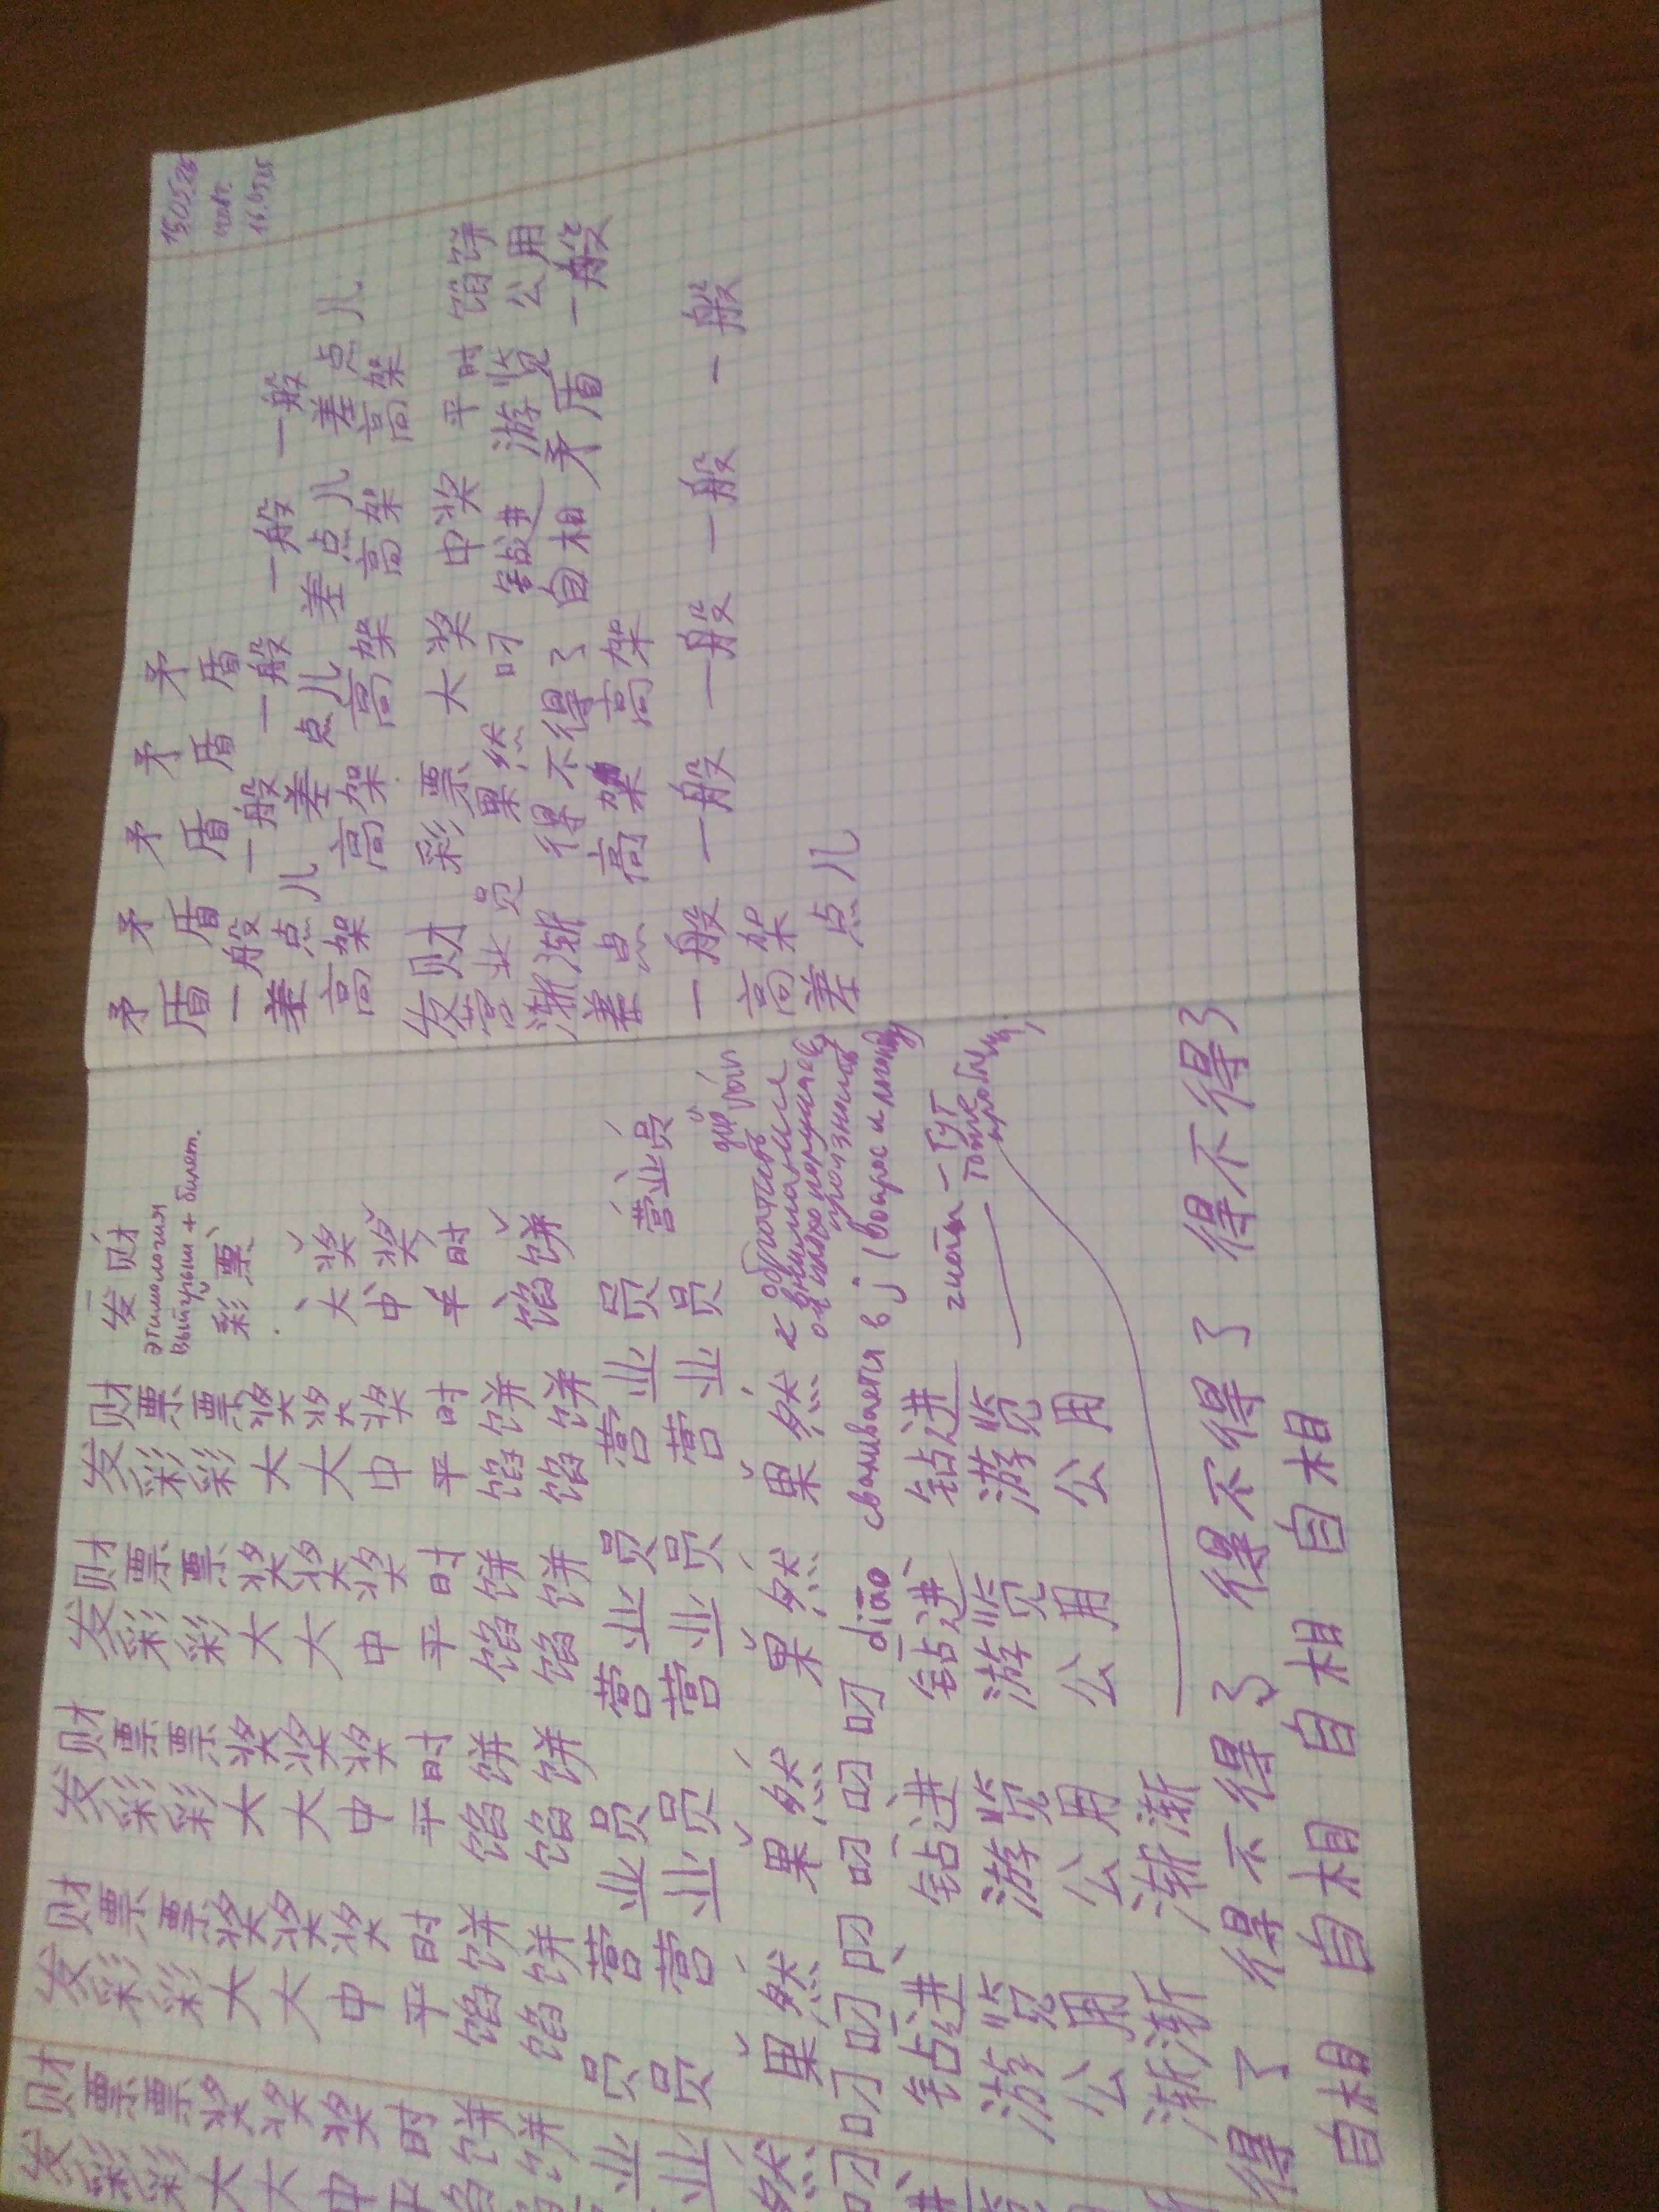 发财 发财 发财 发财 发财 发财
этимология
выигрыш + билет.
彩票 彩票 彩票 彩票 彩票 彩票
彩票 彩票 彩票 彩票 彩票
大奖 大奖 大奖 大奖 大奖 大奖
大奖 大奖 大奖 大奖 大奖
中奖 中奖 中奖 中奖 中奖 中奖
平时 平时 平时 平时 平时 平时
馅饼 馅饼 馅饼 馅饼 馅饼 馅饼
馅饼 馅饼 馅饼 馅饼 馅饼
业员 营业员 营业员 营业员 营业员 营业员
业员 营业员 营业员 营业员 营业员
然 果然 果然 果然 果然
обратиться
к внимание
叼 叼 叼 叼 叼 叼 叼 diāo сваливается в j (вопрос к логопеду
进 钻进 钻进 钻进 钻进
游览 游览 游览 游览
公用 公用 公用 公用
тут
тоже
渐 渐渐 渐渐
得了 得不得了 得不得了 得不得了 得不得了
自相 自相 自相 自相 自相
15.05.25
16.05.25
矛盾 矛盾 矛盾 矛盾 矛盾
一般 一般 一般 一般 一般
差点儿 差点儿 差点儿 差点儿
高架 高架 高架 高架 高架
发财 彩票 大奖 中奖 平时 馅饼
营业员 果然 叼 钻进 游览 公用
渐渐 得不得了 自相矛盾 一般
差点 高架 高架
一般 一般 一般 一般 一般
高架
差点儿